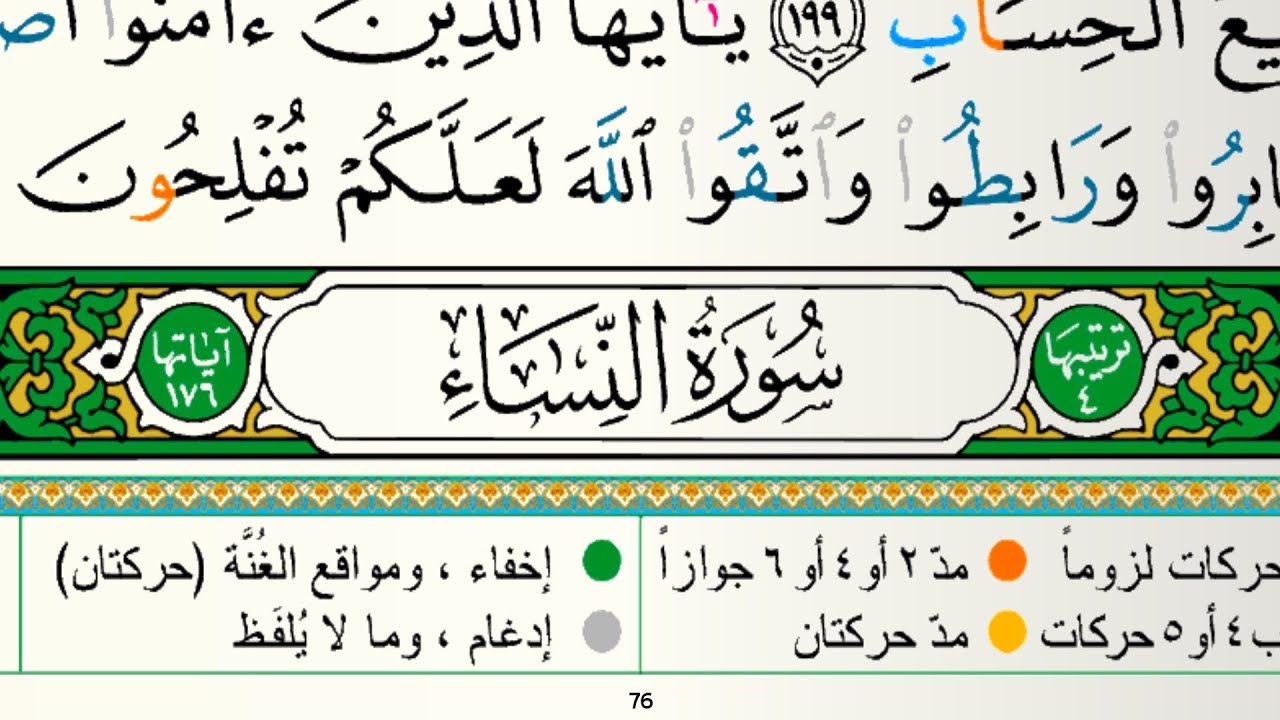 ٱلْحِسَابِ ١٩٩ يَٰٓأَيُّهَا ٱلَّذِينَ ءَامَنُوا۟
وَرَابِطُوا۟ وَٱتَّقُوا۟ ٱللَّهَ لَعَلَّكُمْ تُفْلِحُونَ
ترتيبها ٤ سُورَةُ النِّسَاءِ آياتها ١٧٦
حركات لزوماً مدّ ٢ أو ٤ أو ٦ جوازاً إخفاء ، ومواقع الغُنَّة (حركتان)
٤ أو ٥ حركات مدّ حركتان إدغام ، وما لا يُلفَظ
76